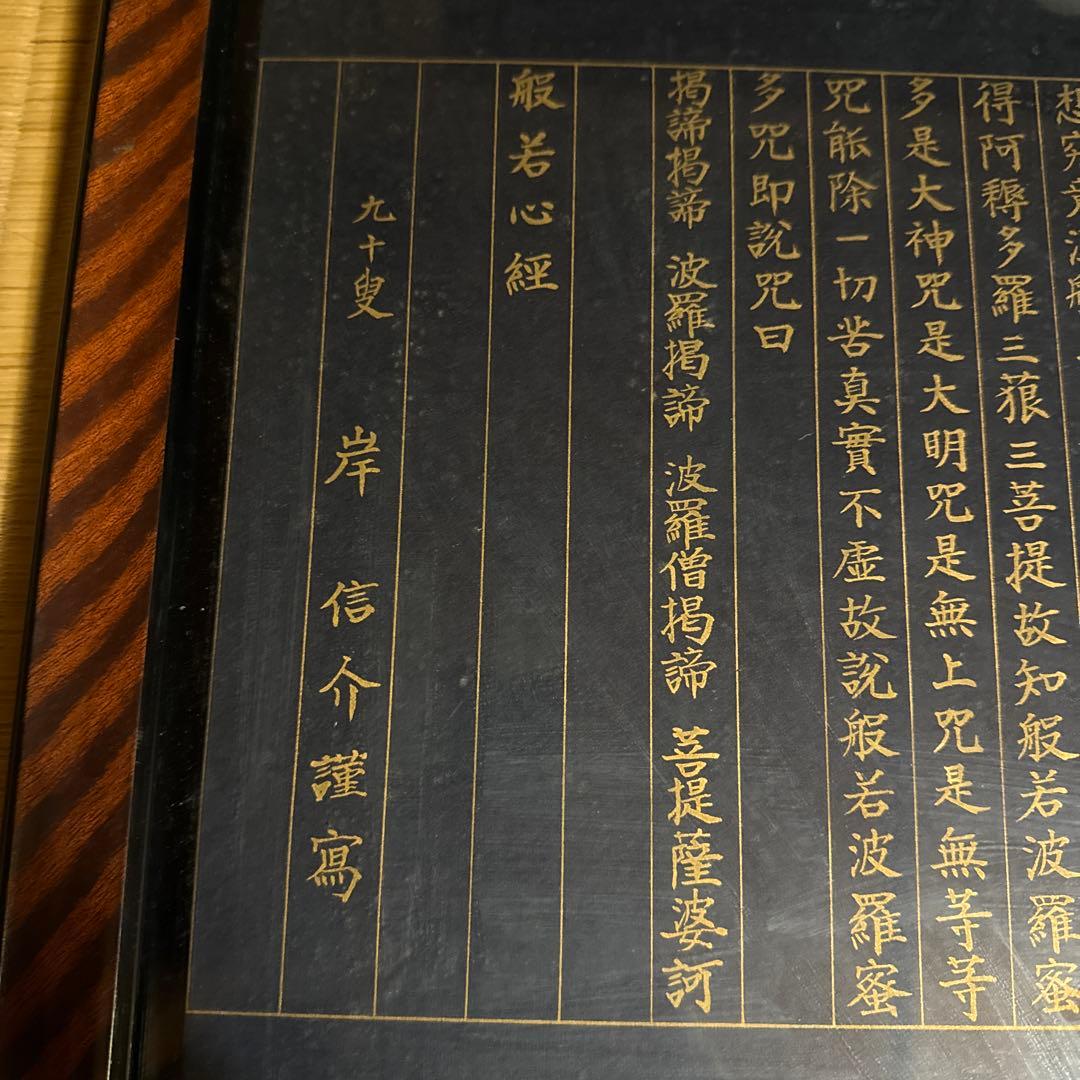 想究竟
得阿耨多羅三藐三菩提故知般若波羅蜜
多是大神咒是大明咒是無上咒是無等等
咒能除一切苦真實不虛故說般若波羅蜜
多咒即說咒曰
揭諦揭諦 波羅揭諦 波羅僧揭諦 菩提薩婆訶
般若心經
九十叟 岸 信介謹寫